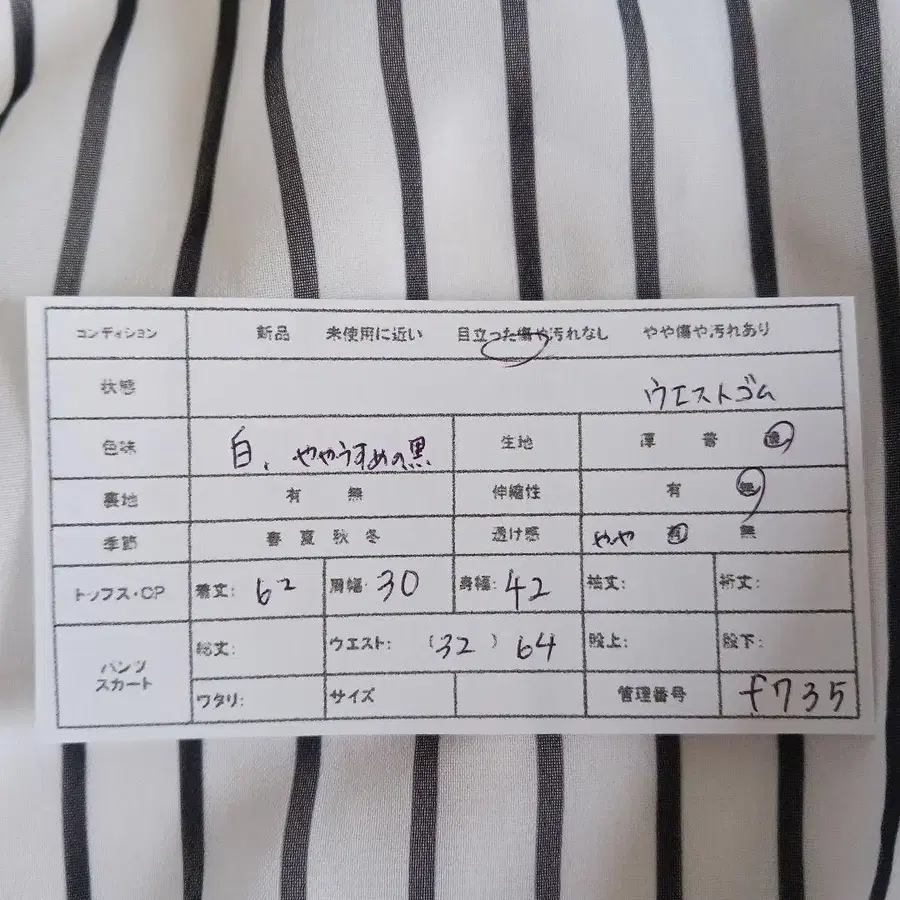 コンディション 新品 未使用に近い 目立った傷や汚れなし やや傷や汚れあり
状態 ウエストゴム
色味 白、ややうすめの黒 生地 厚 普
裏地 有 無 伸縮性 有 無
季節 春 夏 秋 冬 透け感 やや 有 無
トップス・OP 着丈: 62 肩幅: 30 身幅: 42 袖丈: 裄丈:
パンツ スカート 総丈: ウエスト: (32) 64 股上: 股下:
ワタリ: サイズ 管理番号 f735